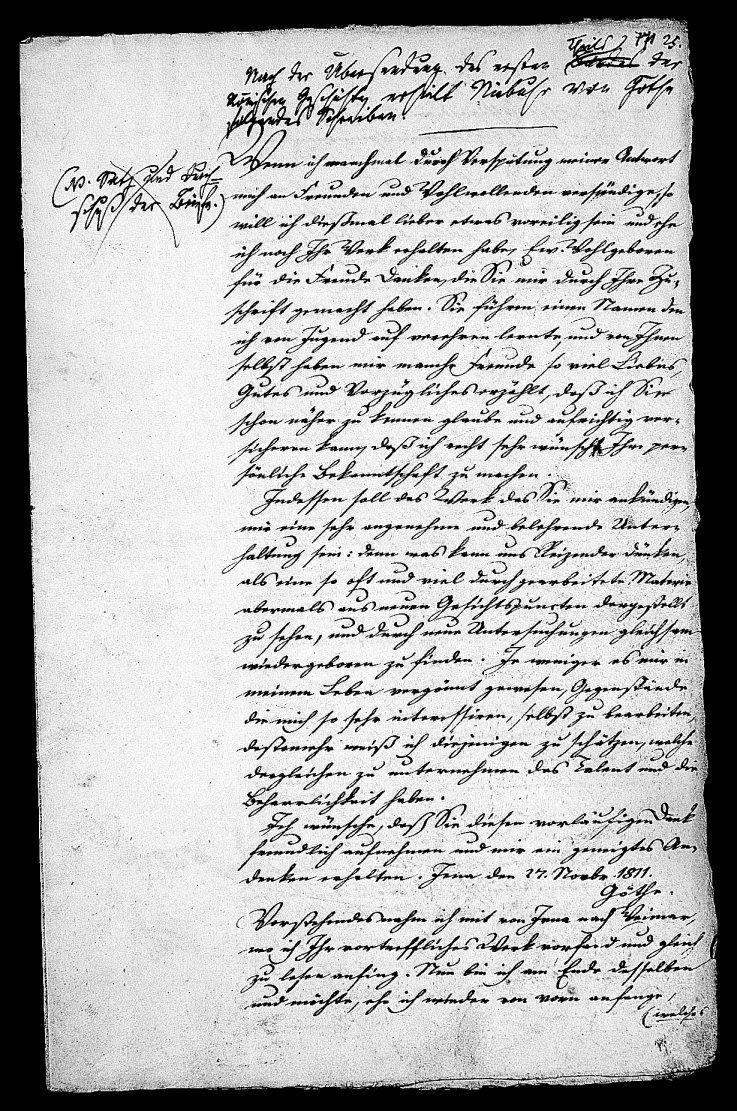 Theils
Nach der Übersendung des ersten Bandes der
Römischen Geschichte erhält Niebuhr von Göthe
folgendes Schreiben
(N. Satz und
der Briefe.)
Wenn ich manchmal durch Verspätung meiner Antwort
mich an Freunden und Wohlwollenden versündige, so
will ich dießmal lieber etwas voreilig sein und ehe
ich noch Ihr Werk erhalten habe, Ew. Wohlgeboren
für die Freude danken, die Sie mir durch Ihre Zu-
schrift gemacht haben. Sie führen einen Namen den
ich von Jugend auf verehren lernte, und von Ihnen
selbst haben mir manche Freunde so viel Liebes,
Gutes und Vorzügliches erzählt, daß ich Sie
schon näher zu kennen glaube und aufrichtig ver-
sichern kann, daß ich recht sehr wünsche Ihre per-
sönliche Bekanntschaft zu machen.
Indessen soll das Werk das Sie mir ankündigen,
mir eine sehr angenehme und belehrende Unter-
haltung sein: denn was kann uns Reizender dünken,
als eine so oft und viel durchgearbeitete Materie
abermals aus neuen Gesichtspuncten dargestellt
zu sehen, und durch neue Untersuchungen gleichsam
wiedergeboren zu finden. Je weniger es mir in
meinem Leben vergönnt gewesen, Gegenstände
die mich so sehr interessiren, selbst zu bearbeiten,
destomehr weiß ich diejenigen zu schätzen, welche
dergleichen zu unternehmen das Talent und die
Beharrlichkeit haben.
Ich wünsche, daß Sie diesen vorläufigen Dank
freundlich aufnehmen und mir ein geneigtes An-
denken erhalten. Jena den 27. Novbr. 1811.
Göthe.
Vorstehendes nahm ich mit von Jena nach Weimar,
wo ich Ihr vortreffliches Werk vorfand und gleich
zu lesen anfing. Nun bin ich am Ende desselben
und möchte, ehe ich wieder von vorn anfange,
(welches